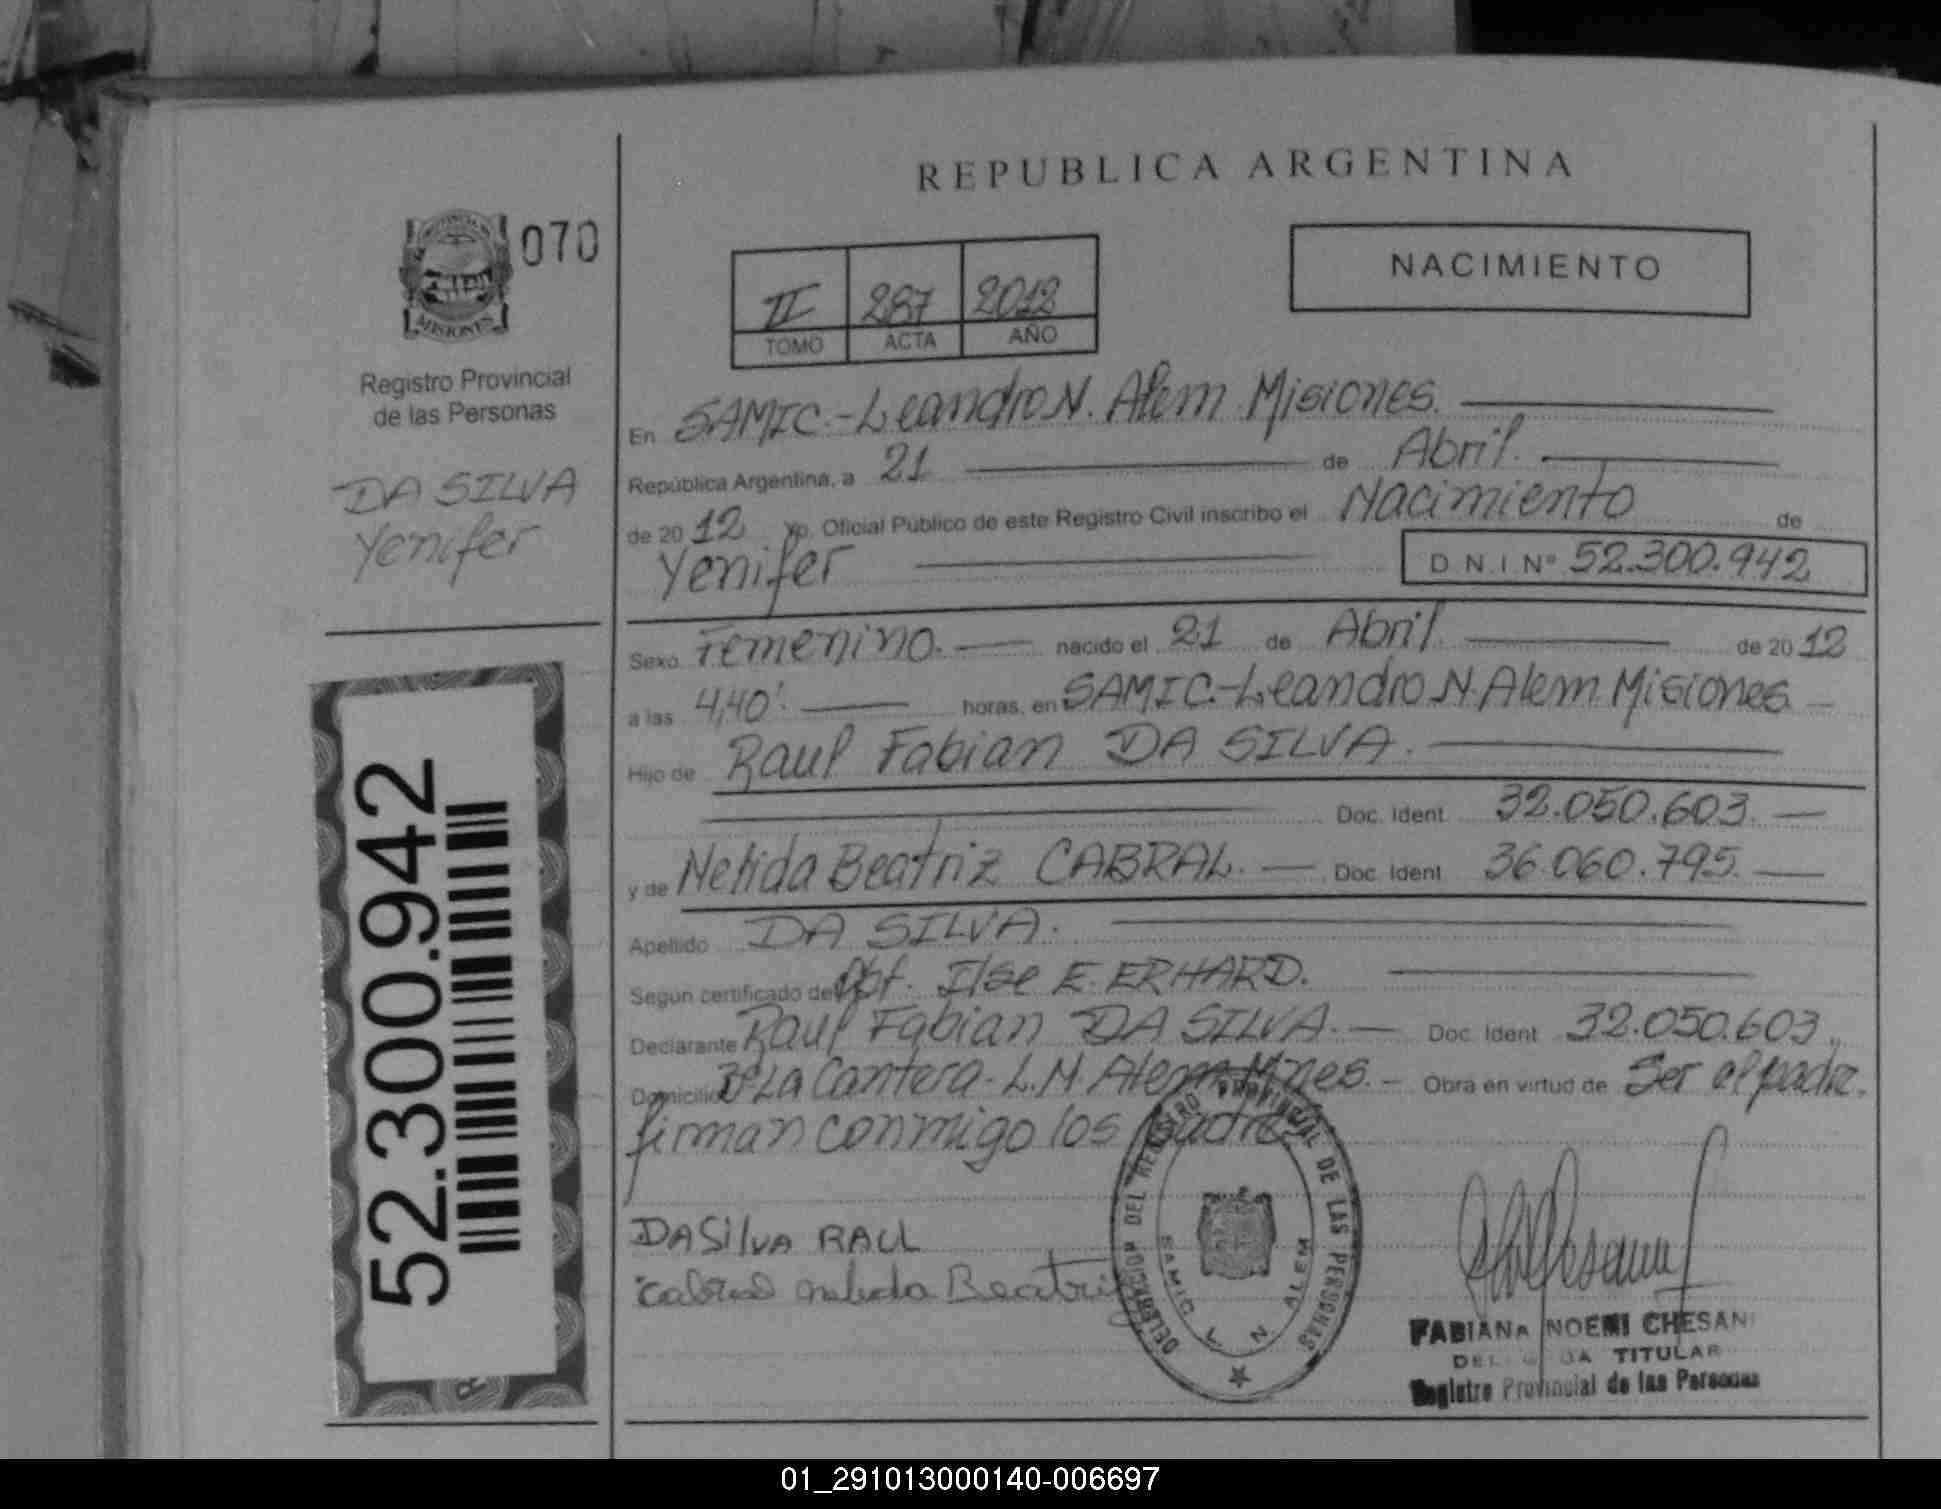 REPUBLICA ARGENTINA
PROVINCIA DE
MISIONES
070
Registro Provincial
de las Personas
DA SILVA
Yenifer
52.300.942
II 287 2012
TOMO ACTA AÑO
NACIMIENTO
En SAMIC.-Leandro N. Alem Misiones.
República Argentina, a 21 de Abril.
de 2012 Yo, Oficial Público de este Registro Civil inscribo el Nacimiento de
Yenifer D.N.I. Nº 52.300.942
Sexo Femenino. nacido el 21 de Abril. de 2012
a las 4,40' horas, en SAMIC.-Leandro N. Alem Misiones
Hijo de Raul Fabian DA SILVA.
Doc. Ident 32.050.603.
y de Nelida Beatriz CABRAL. Doc. Ident 36.060.795.
Apellido DA SILVA.
Según certificado de Obt. Ilse E. ERHARD.
Declarante Raul Fabian DA SILVA. Doc. Ident 32.050.603.
Domicilio Bº La Cantera - L.N. Alem Mnes. Obra en virtud de Ser el padre.
firman conmigo los padres
DASilVA RAUL
Cabral nelida Beatriz
DELEGACION DEL REGISTRO PROVINCIAL DE LAS PERSONAS
SAMIC L N ALEM
FABIANA NOEMI CHESANI
DELEGADA TITULAR
Registro Provincial de las Personas
01_291013000140-006697